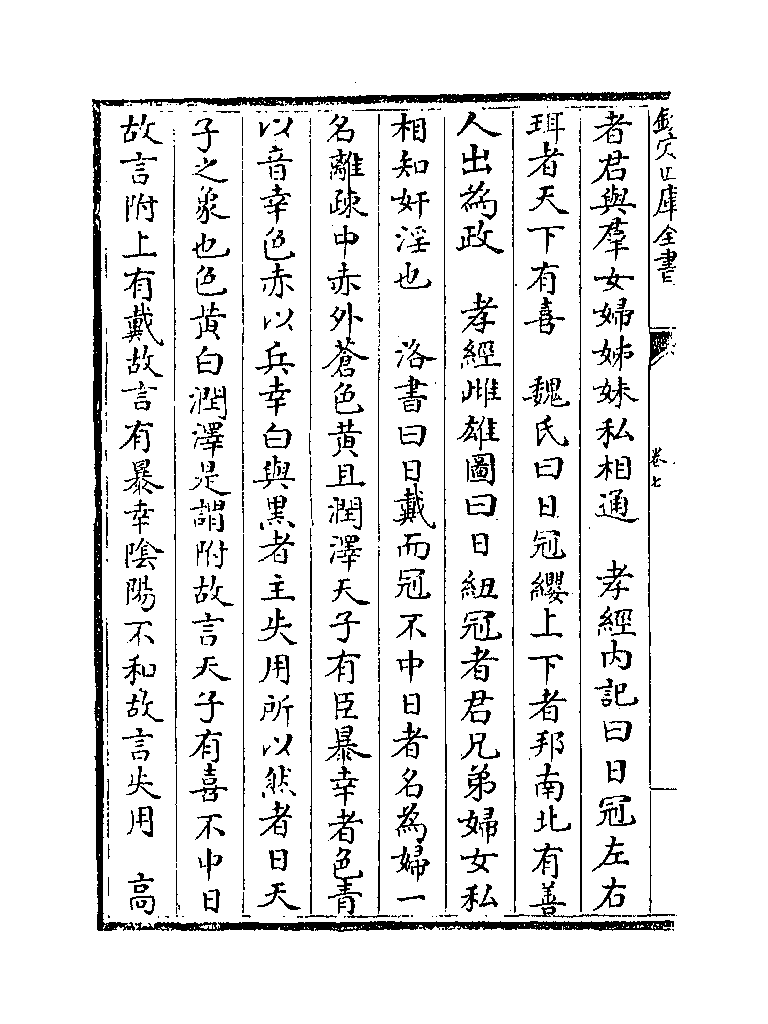 欽定四庫全書
卷七
者君與羣女婦姊妹私相通　孝經内記曰日冠左右
珥者天下有喜　魏氏曰日冠纓上下者邦南北有善
人出為政　孝經雌雄圖曰日紐冠者君兄弟婦女私
相知奸淫也　洛書曰日戴而冠不中日者名為婦一
名離疎中赤外蒼色黄且潤澤天子有臣暴幸者色青
以音幸色赤以兵幸白與黒者主失用所以然者日天
子之象也色黄白潤澤是謂附故言天子有喜不中日
故言附上有戴故言有暴幸隂陽不和故言失用　高